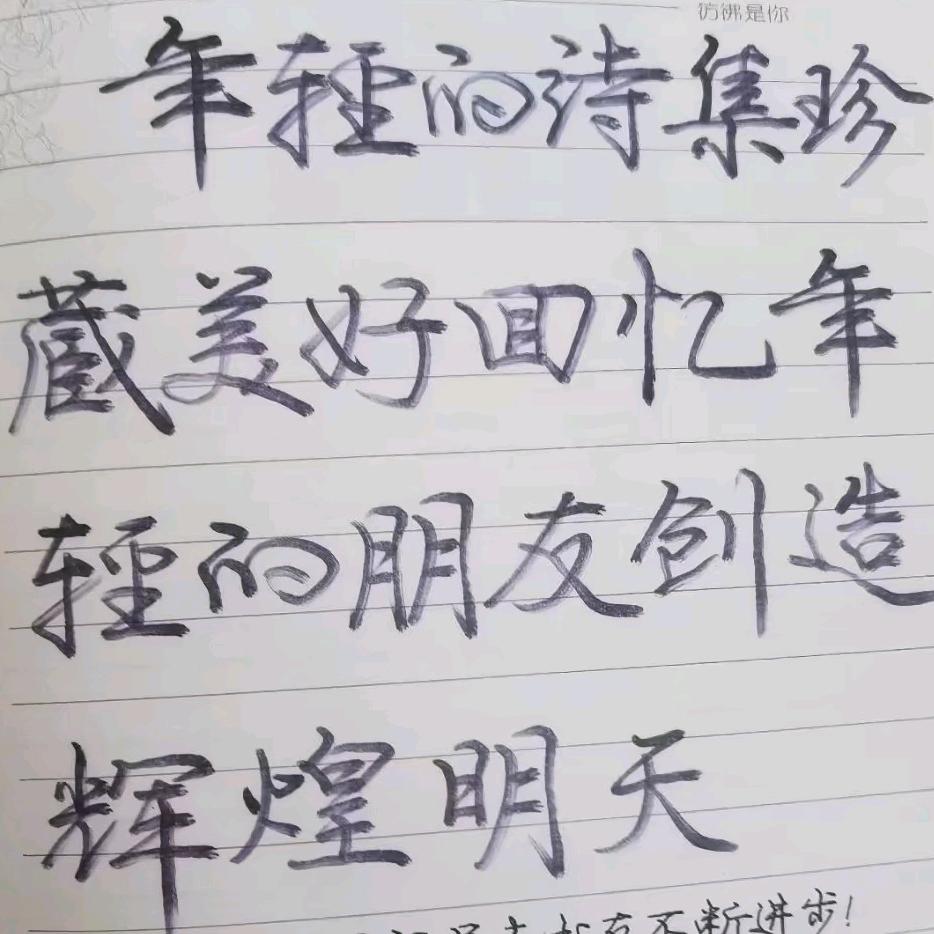 仿佛是你
年輕的诗集珍
蔵美好回忆年
輕的朋友创造
辉煌明天
不断进步!